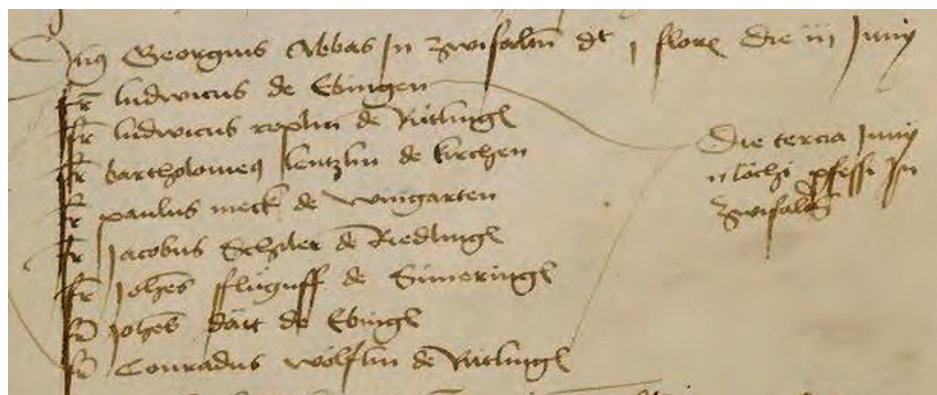 Dns Georgius Abbas In Zwifaltn dt j flore Die iij Junij
fr ludwicus de Ebingen
fr ludwicus replin de Rütlinge
fr bartholomeus lentzlin de kirchen
fr paulus meck de wingarten
fr Jacobus Schiler de Riedlinge
fr Johes fflüguff de Simeringe
fr Johes dätt de Ebinge
fr Conradus wölfflin de Rütlinge
Die tercia Junij
pfessi In
Zwifaltn